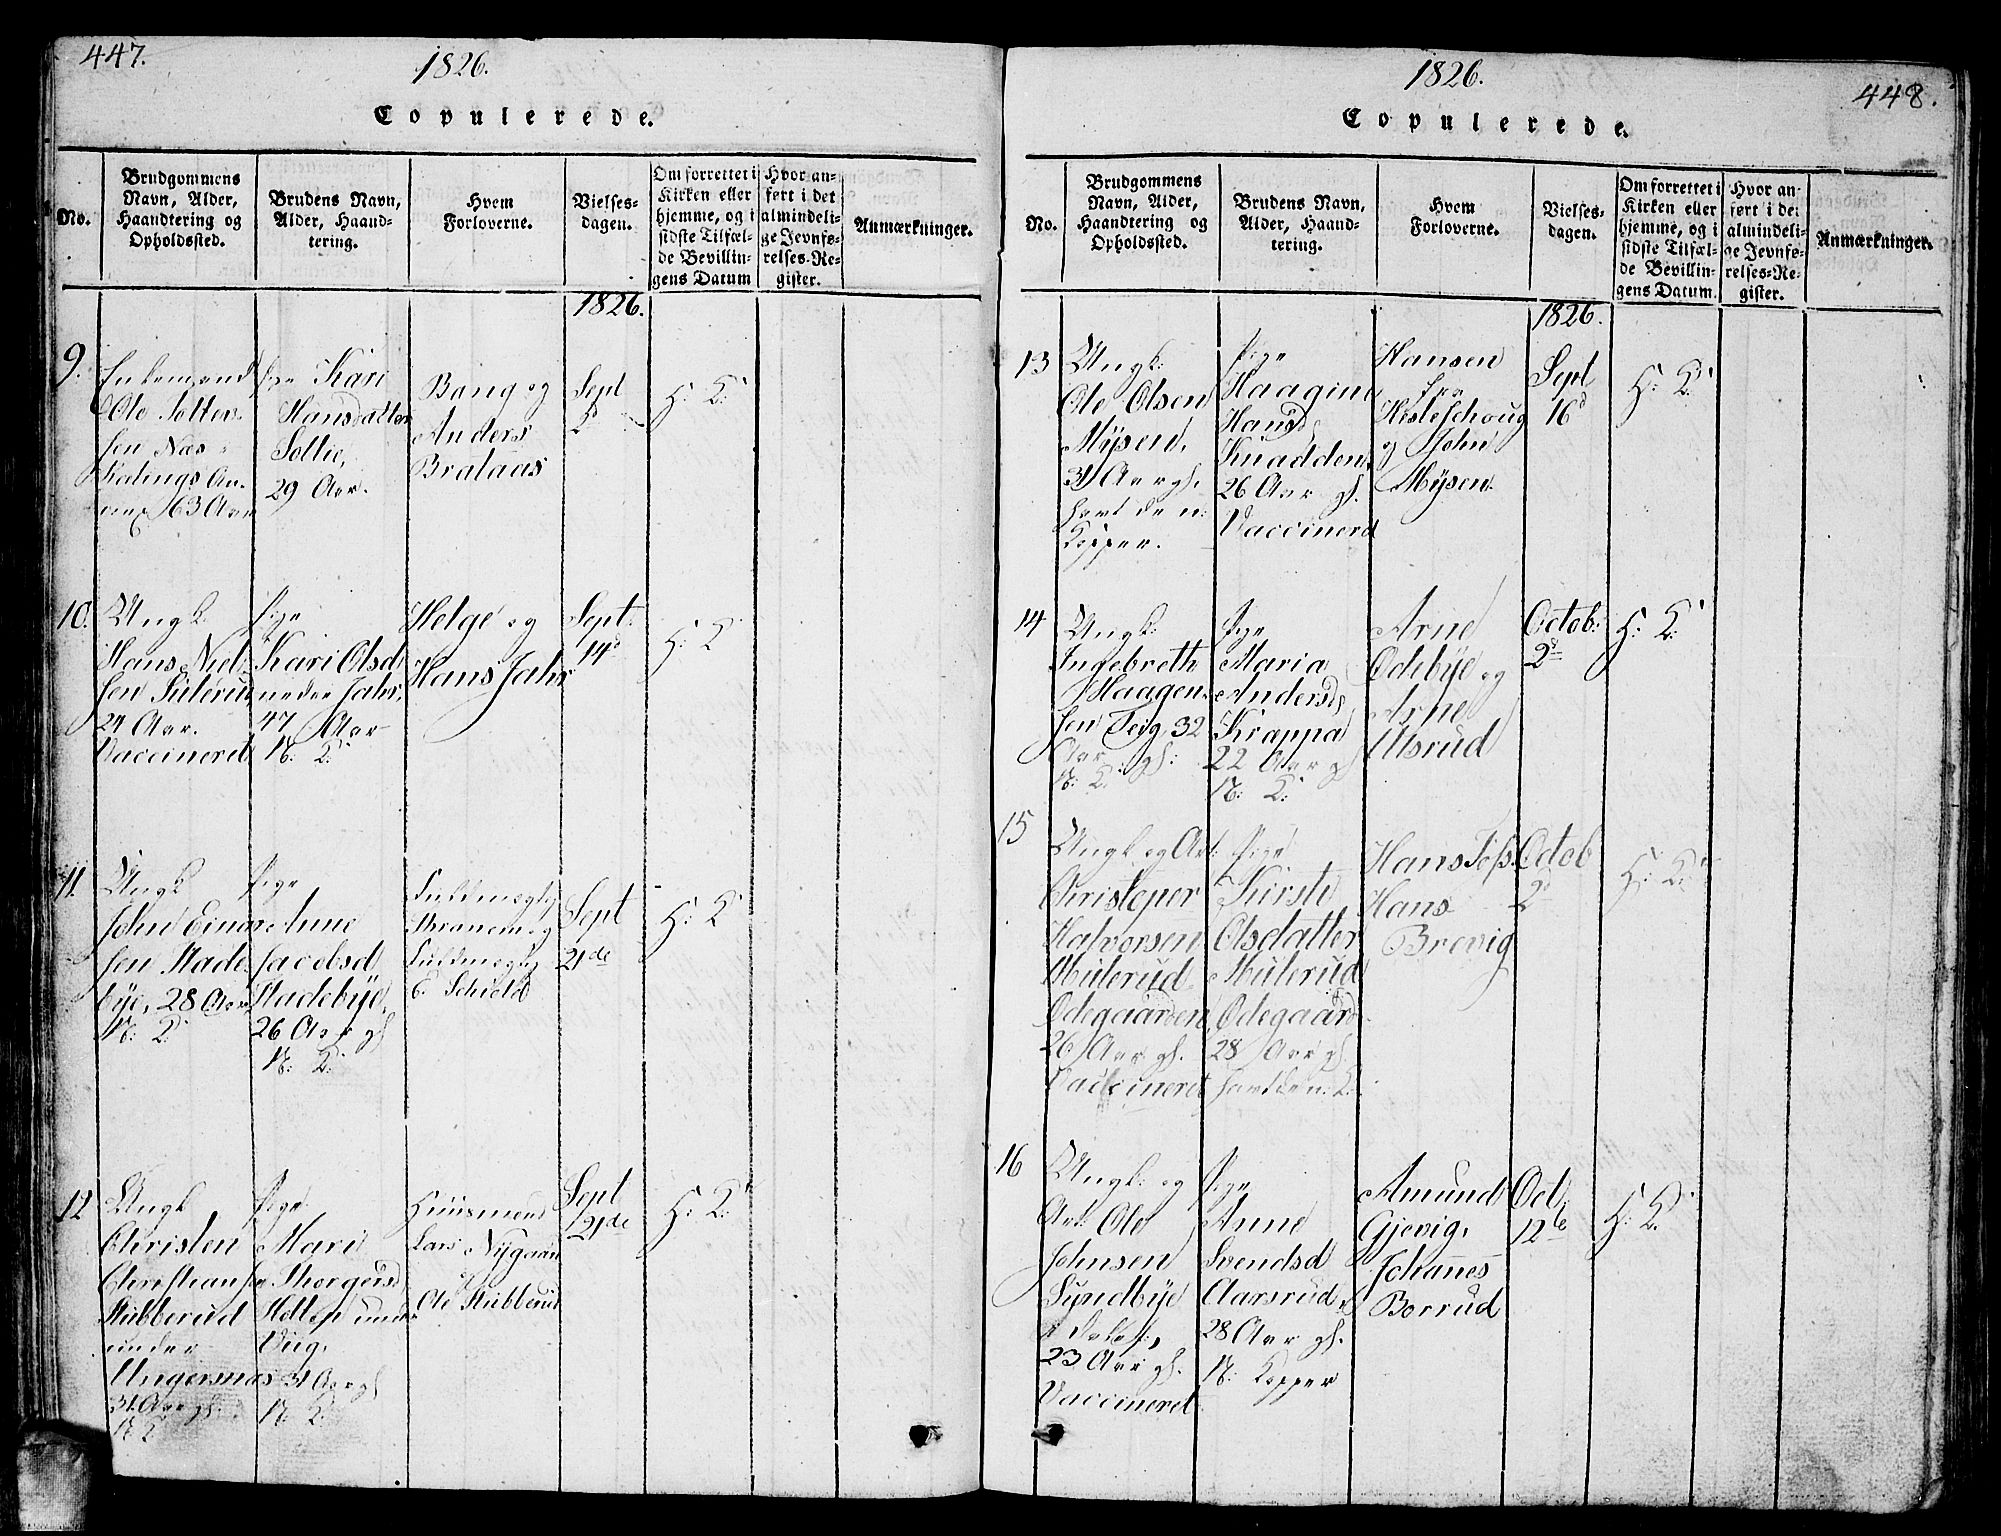 447.
1826.
Copulerede.
No.
Brudgommens
Navn, Alder,
Haandtering og
Opholdssted.
Brudens Navn,
Alder, Haand-
tering.
Hvem
Forloverne.
Vielses-
dagen.
Om forrettet i
Kirken eller
hjemme, og i
sidste Tilfæl-
de Bevillin-
gens Datum
Hvor an-
ført i det
almindeli-
ge Jevnfø-
relses-Re-
gister.
Anmærkninger.
1826.
9.
Enkemand
Ole
sen Næs
Anne
63 Aar
Pige Kari
Hansdatter
Sollie,
29 Aar.
Bang og
Anders
Brataas
Sept
H: K:
10.
Ungk.
Hans Niel-
sen Sulerud
24 Aar.
Vaccineret
Pige
Kari Olsd
nedre Jahr,
47 Aar
N: K:
Helge og
Hans Jahr
Sept:
14d
H: K
11.
Ungk
John Einar-
sen Stade-
bye, 28 Aar
N: K:
Pige
Anne
Jacobsd
Stadebye,
26 Aar gl
N: K:
Fuldmægtig
og
Fuldmægtig
C. Schiold
Sept
21de
H: K
12
Ungk
Christen
Christiansen
Stubberud
under
Ungersnæs
31 Aar gl.
N: K
Pige
Mari
Thorgersd
under
Vug,
31 Aar gl
N: K:
Huusmand
Lars Nygaard
og
Ole Stubberud
Sept
21de
H: K:
1826.
448.
Copulerede.
No.
Brudgommens
Navn, Alder,
Haandtering og
Opholdssted.
Brudens Navn,
Alder, Haand-
tering.
Hvem
Forloverne.
Vielses-
dagen.
Om forrettet i
Kirken eller
hjemme, og i
sidste Tilfæl-
de Bevillin-
gens Datum.
Hvor an-
ført i det
almindeli-
ge Jevnfø-
relses-Re-
gister.
Anmærkninger.
1826.
13
Ungk:
Ole Olsen
Mysen,
31 Aar gl.
havt de n:
Kopper.
Pige
Haagine
Hansd
Knadden,
26 Aar gl.
Vaccinerd
Hansen
Hesleschoug
og John
Mysen.
Sept
16d
H: K:
14
Ungk:
Ingebreth
Haagen-
sen Teig, 32
Aar gl:
N: K:
Pige
Maria
Andersd:
Krappa
22 Aar gl
N: K:
Arne
Ødebye og
Arne
Ulsrud
Octob:
2d
H: K:
15
Ungk og Art:
Christopher
Halvorsen
Mulerud
Ødegaarden,
26 Aar gl.
Vaccineret
Pige
Kirste
Olsdatter
Mulerud
Ødegaard
28 Aar gl.
havt de n: K:
Hans
Hans
Brevig
Octob
2d
H: K:
16
Ungk: og
Art: Ole
Johnsen
Lyndbye
23 Aar gl.
Vaccineret
Pige
Anne
Svendsd
Aarsrud
28 Aar gl.
N: Kopper
Amund
Gjevig,
Johannes
Borrud
Oct:
12te
H: K: